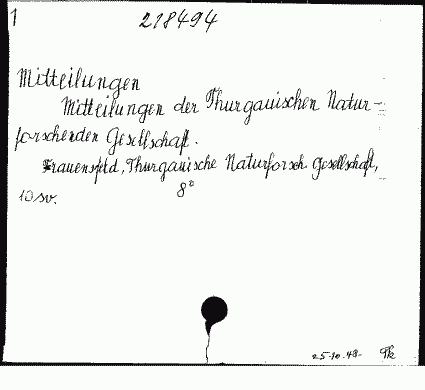 1 218494
Mitteilungen
Mitteilungen der Thurgauischen Natur-
forschenden Gesellschaft.
Frauenfeld, Thurgauische Naturforsch. Gesellschaft,
8°
25.10.48.